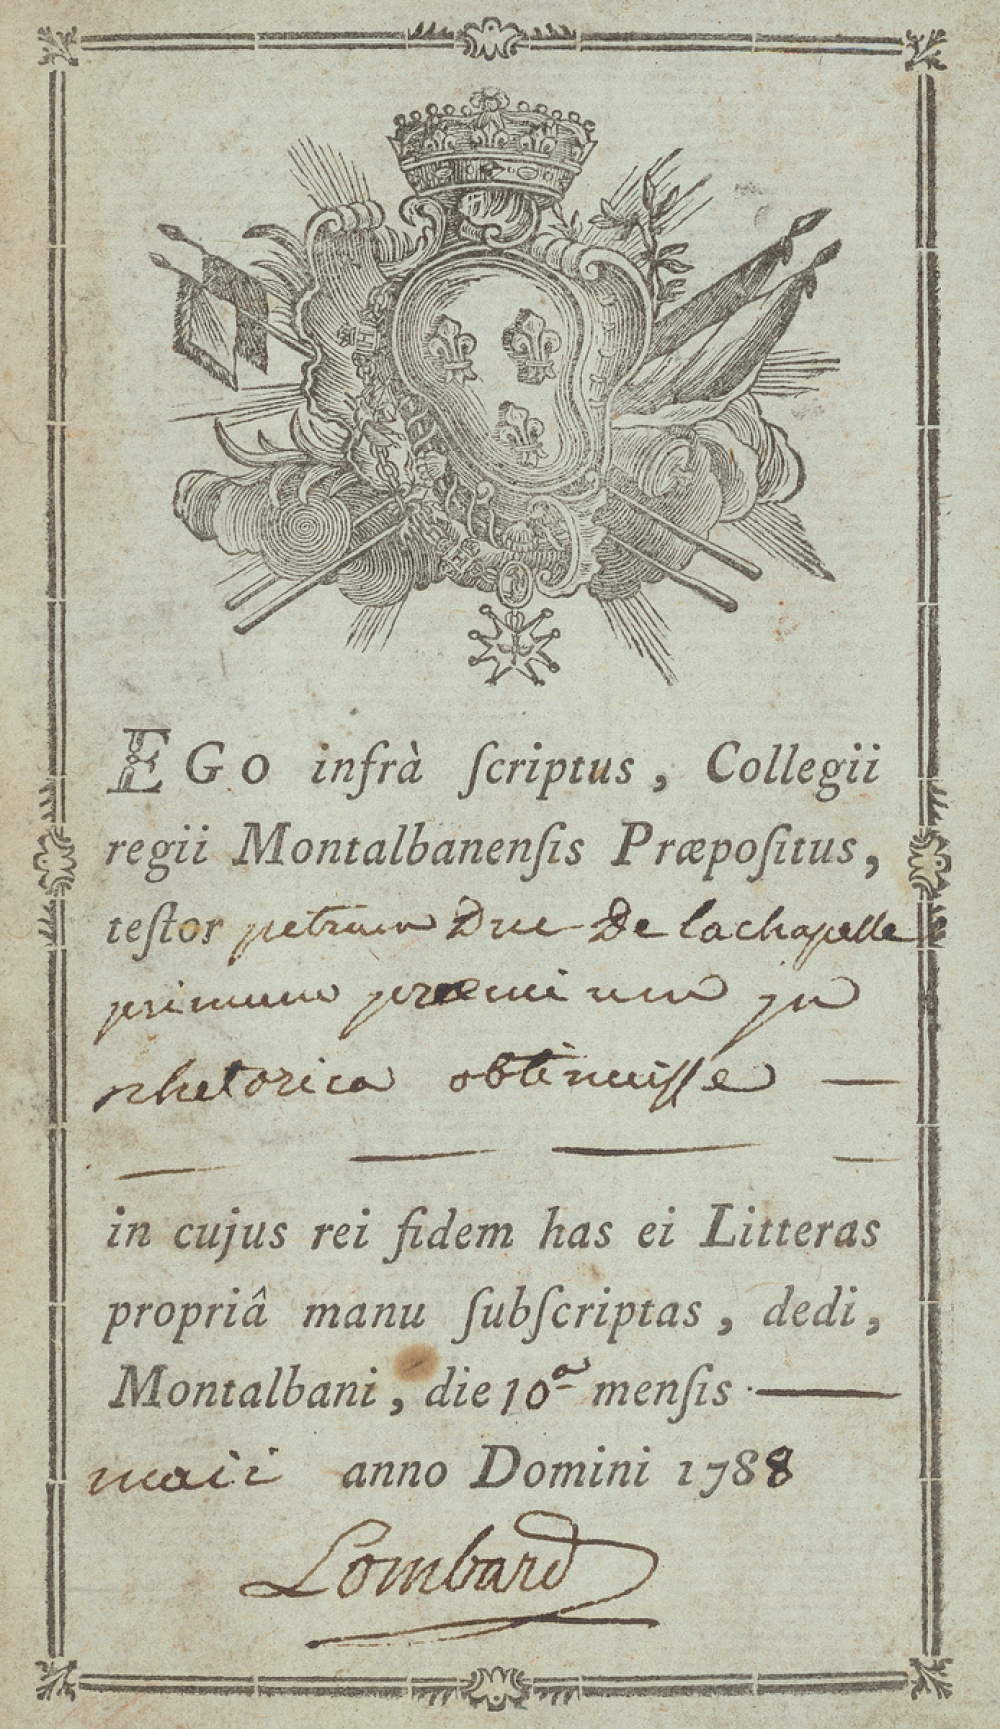 EGO infrà ſcriptus, Collegii
regii Montalbanenſis Præpoſitus,
teſtor petrum Due De lachapelle
primum præmium in
rhetorica obtinuiſſe —
in cujus rei fidem has ei Litteras
propriâ manu ſubſcriptas, dedi,
Montalbani, die 10ª menſis
maii anno Domini 1788
Lombard